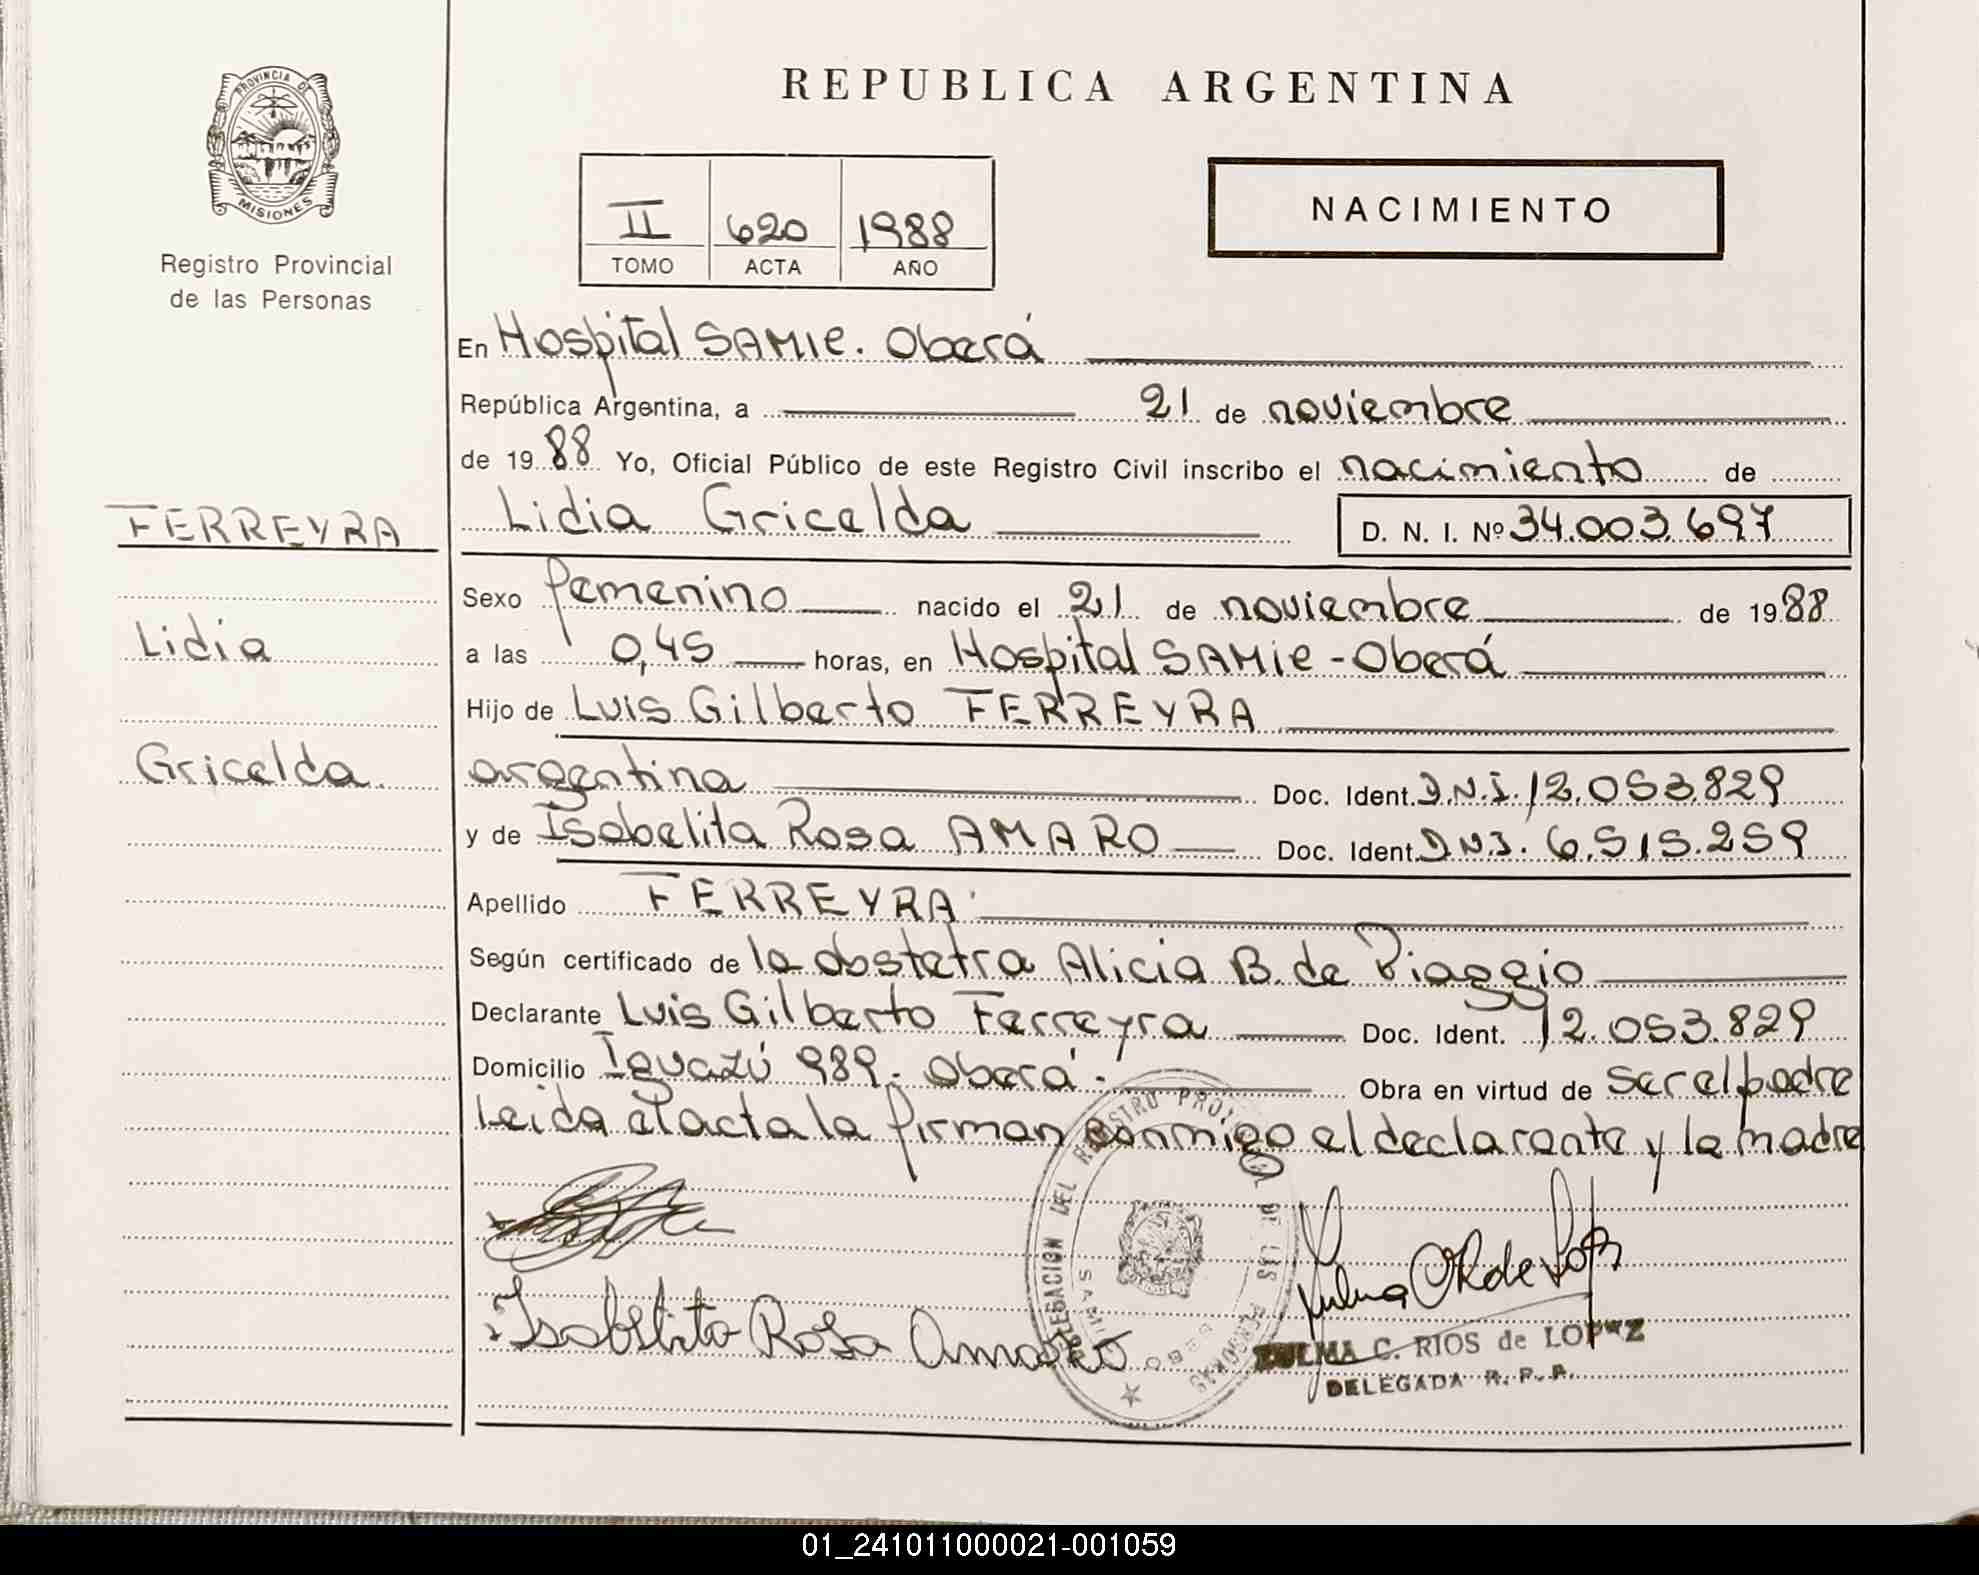 REPUBLICA ARGENTINA
PROVINCIA DE
MISIONES
Registro Provincial
de las Personas
II 620 1988
TOMO ACTA AÑO
NACIMIENTO
En Hospital SAMIC. Oberá
República Argentina, a 21 de noviembre
de 1988 Yo, Oficial Público de este Registro Civil inscribo el nacimiento de
FERREYRA
Lidia Gricelda D. N. I. Nº 34.003.697
Sexo femenino nacido el 21 de noviembre de 1988
Lidia
a las 0,45 horas, en Hospital SAMIC - Oberá
Hijo de Luis Gilberto FERREYRA
Gricelda
argentina Doc. Ident. D.N.I. 12.053.829
y de Isabelita Rosa AMARO Doc. Ident. D.N.I. 6.515.259
Apellido FERREYRA
Según certificado de la obstetra Alicia B. de Piaggio
Declarante Luis Gilberto Ferreyra Doc. Ident. 12.053.829
Domicilio Iguazú 989. Oberá. Obra en virtud de ser el padre
Leida el acta la firman conmigo el declarante y la madre
DELEGACION DEL REGISTRO PROVINCIAL DE LAS PERSONAS
Isabelita Rosa Amaro
ZULMA C. RIOS de LOPEZ
DELEGADA R. P. P.
01_241011000021-001059